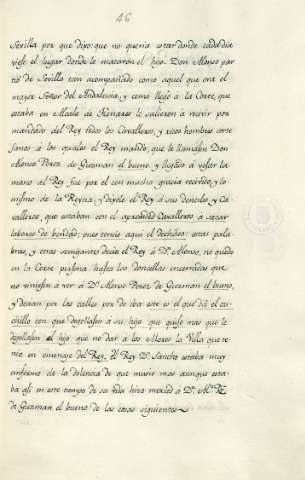 46
Sevilla por que dixo: que no queria estar donde cada dia
viese el lugar donde le mataron el hijo. Don Alonso par
tió de Sevilla tan acompañado como aquel que era el
mayor Señor del Andalucia, y como llegó á la Corte, que
estaba en Alcala de Henares le salieron a recivir por
mandado del Rey todos los Cavalleros, y ricos hombres corte
sanos á los quales el Rey mandó, que le llamasen Don
Alonso Perez de Guzman el bueno y llegado á vesar la
mano al Rey fue por el con mucha gracia recivido, y lo
mismo de la Reyna, y dixole el Rey á sus donceles y Ca
valleros, que estaban con el aprended Cavalleros á sacar
labores de bondad; pues teneis aqui el dechado: estas pala
bras, y otras semejantes decia el Rey á Dn. Alonso, no quedó
en la Corte persona hasta las doncellas encerradas que
no viniesen a ver á Dn. Alonso Perez de Guzman el bueno,
y decian por las calles por do iba este es el que dió el cu
chillo con que degollasen a su hijo que quiso mas que le
degollasen el hijo que no dar á los Moros la Villa que te
nia en omenaje del Rey. El Rey Dn. Sancho estaba muy
enfermo de la dolencia de que murio mas aunque esta
ba asi en este tiempo de su vida hizo merced á Dn.
de Guzman el bueno de las cosas siguientes